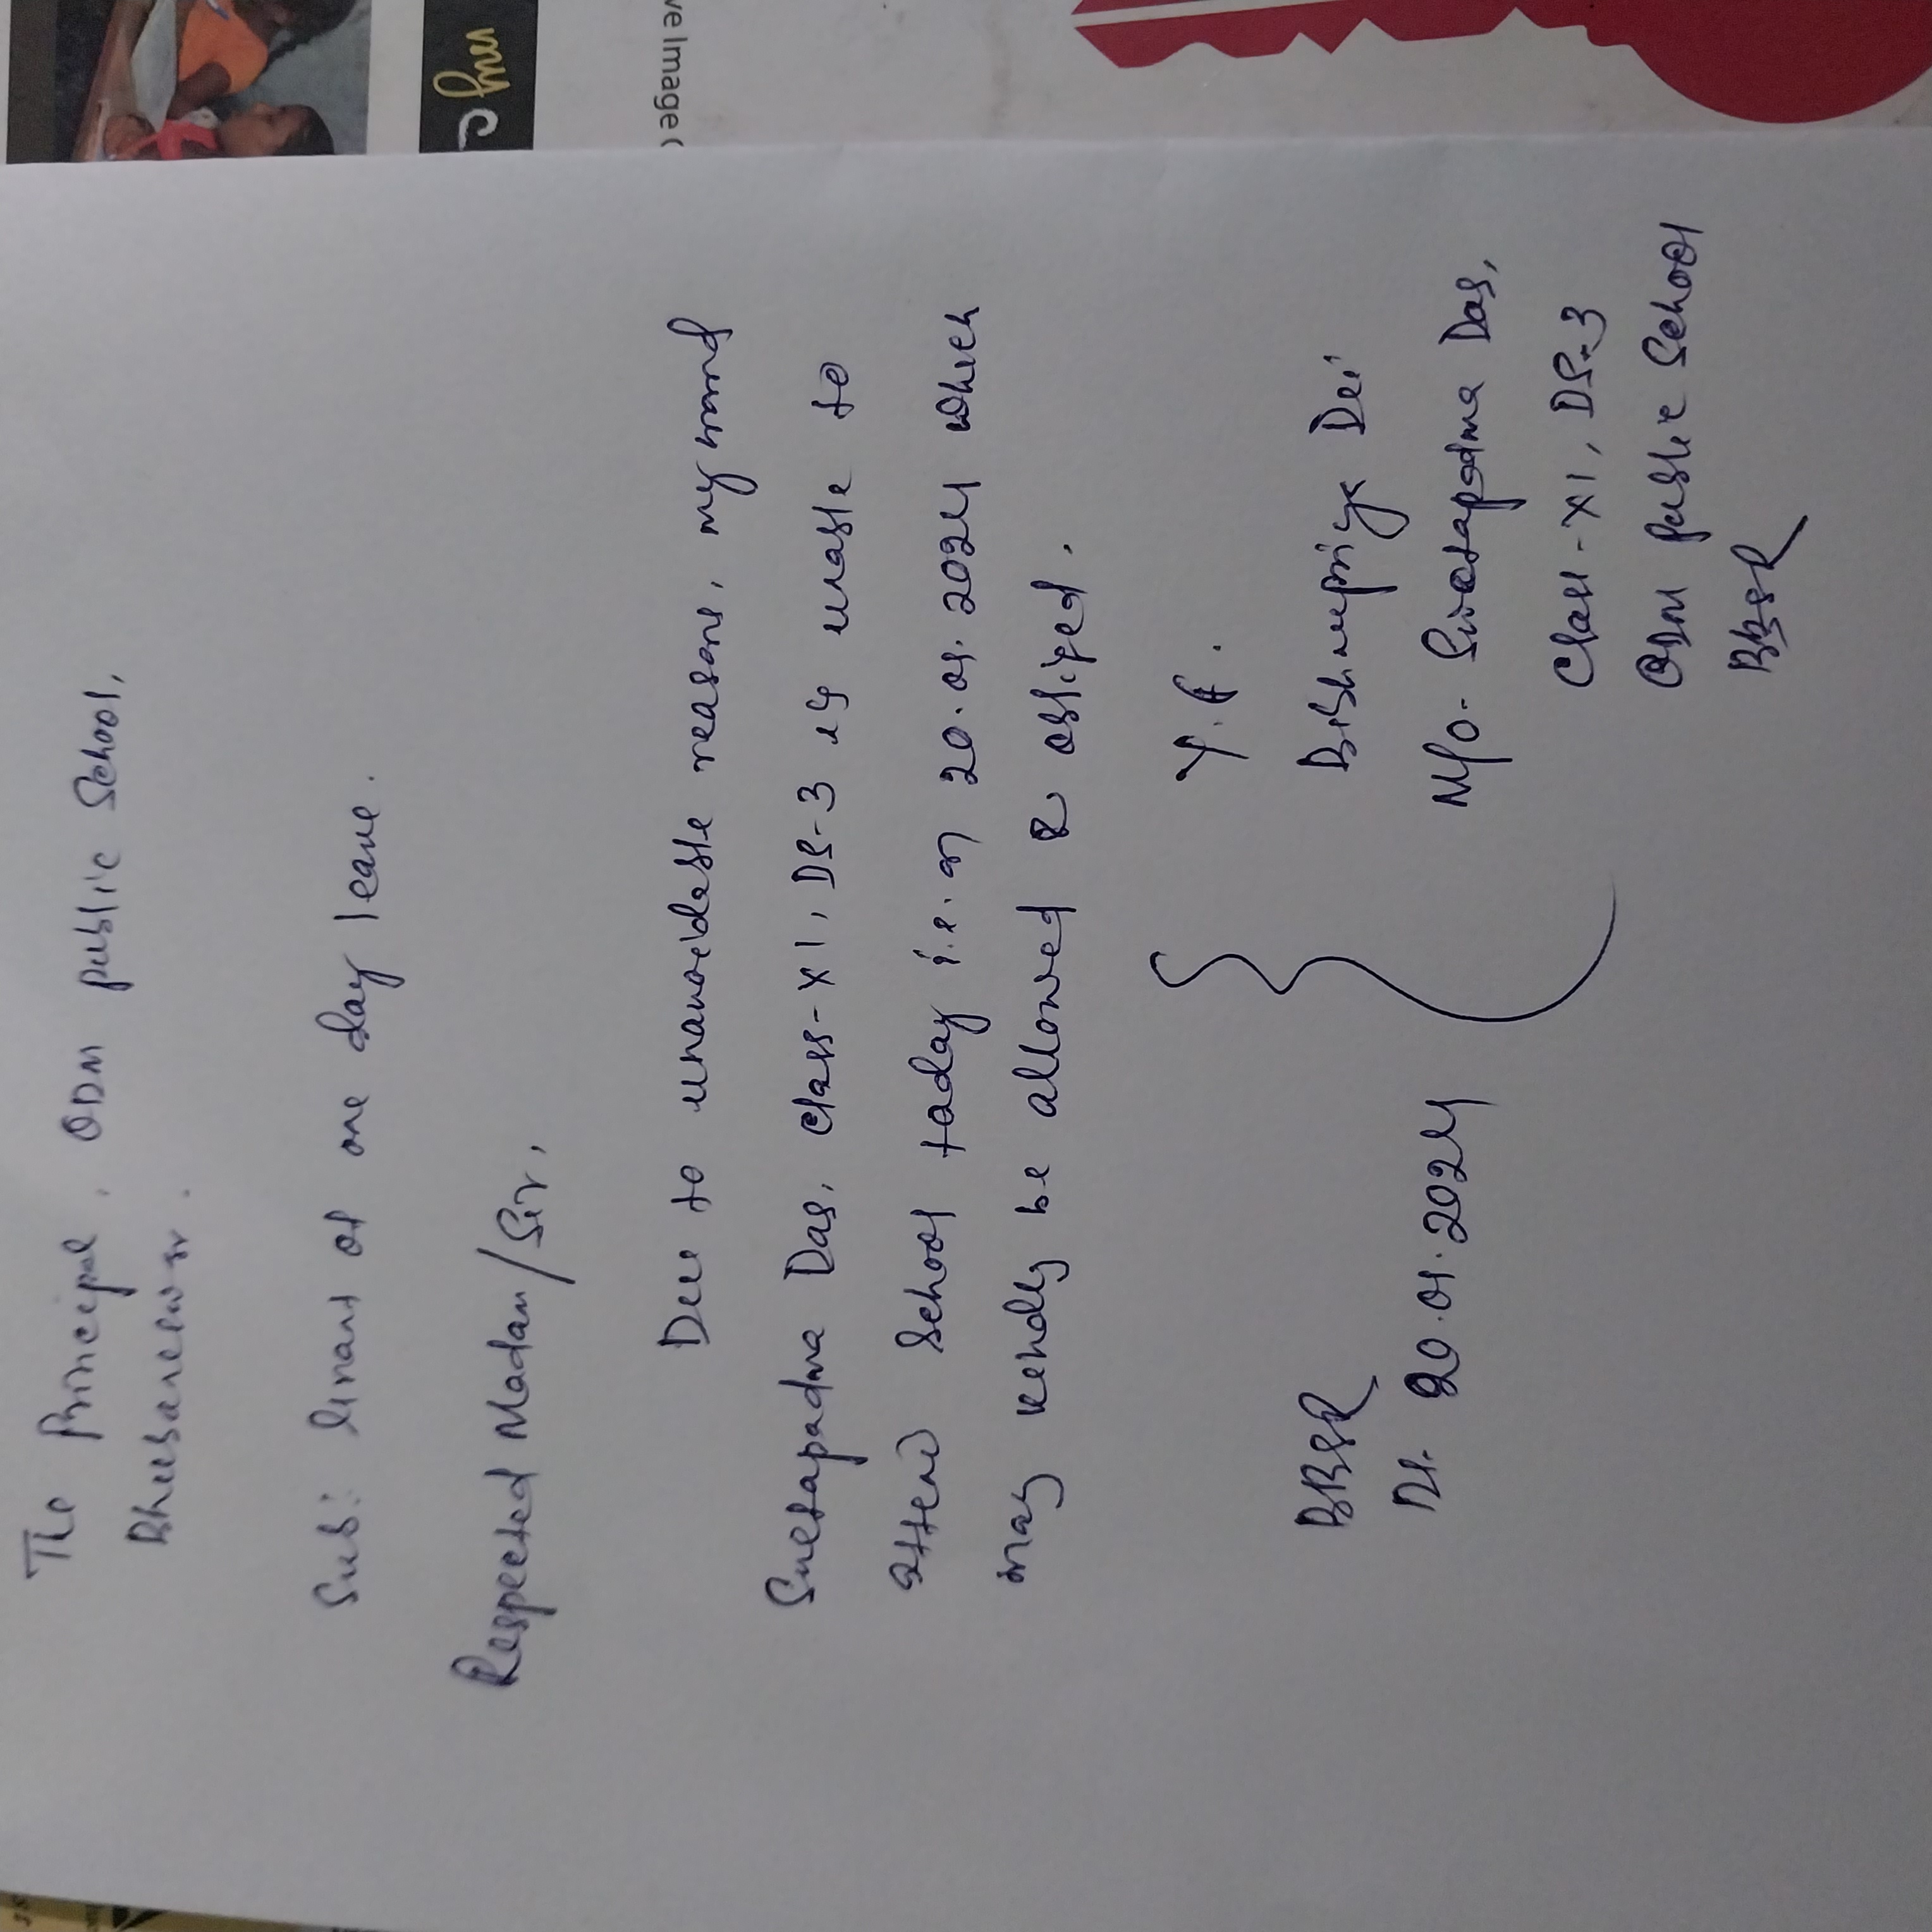 The Principal, ODM public School,
Bhubaneswar.
Sub: Grant of one day leave.
Respected Madam/Sir,
Due to unavoidable reasons, my ward
Smetapadma Das, class-XI, DS-3 is unable to
attend School today i.e. on 20.01.2024 which
may kindly be allowed & obliged.
Y.f.
BBSR
Dt. 20.01.2024
Bishnupriya Dei
M/o- Smetapadma Das,
Class-XI, DS-3
ODM public School
BBSR
ve Image (